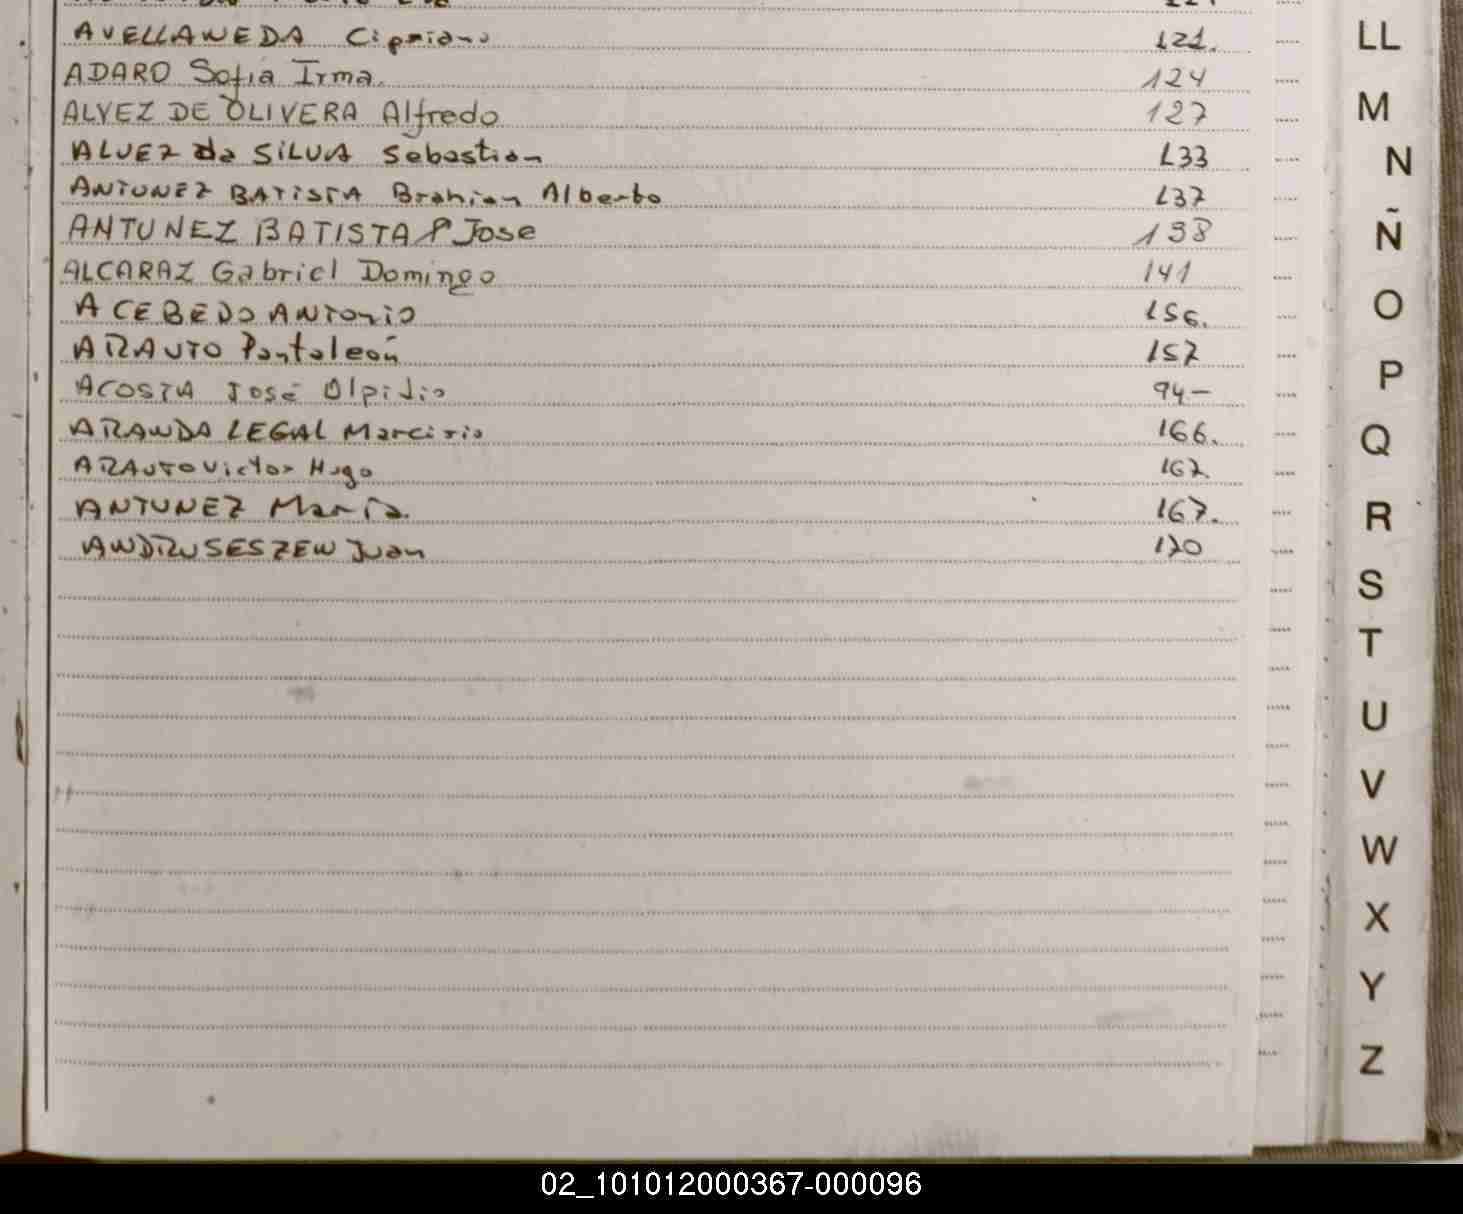 AVELLANEDA Cipriano 121.
ADARO Sofia Irma. 124
ALVEZ DE OLIVERA Alfredo 127
ALVEZ da SILVA Sebastian 133
ANTUNEZ BATISTA Brahian Alberto 137
ANTUNEZ BATISTA P Jose 138
ALCARAZ Gabriel Domingo 141
ACEBEDO ANTONIO 156.
ARAUTO Pantaleón 157
ACOSTA José Olpidio 94-
ARANDA LEGAL Marcirio 166.
ARAUTO Victor Hugo 167
ANTUNEZ María. 167.
ANDRUSESZEN Juan 170
LL
M
N
Ñ
O
P
Q
R
S
T
U
V
W
X
Y
Z
02_101012000367-000096